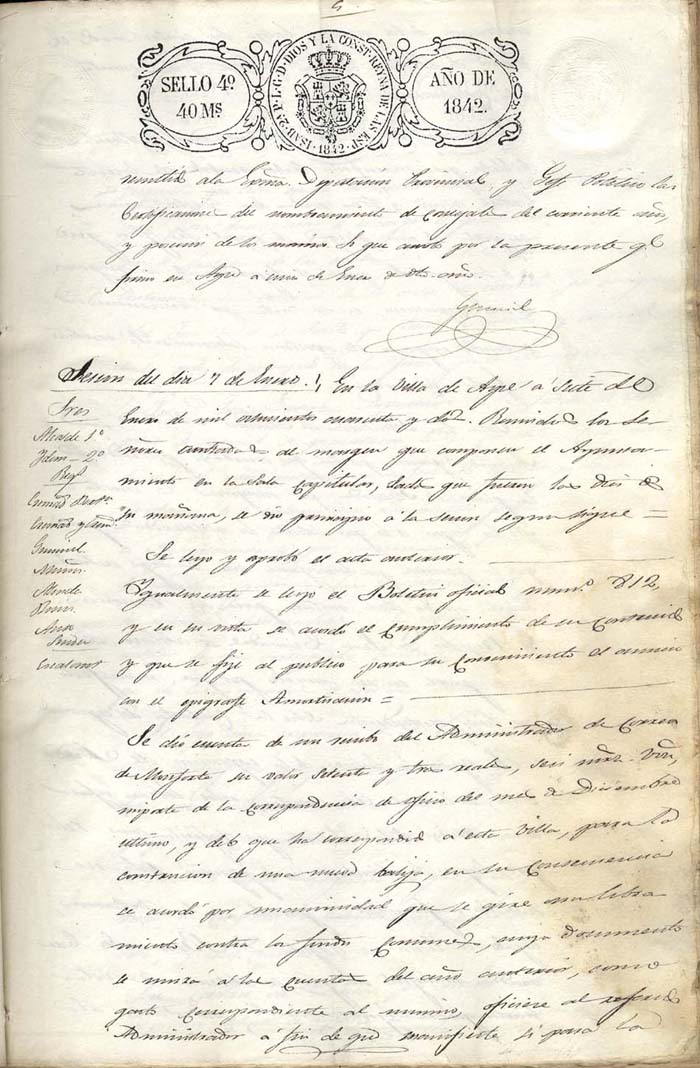 5.
SELLO 4º
40 Mˢ
ISAB. 2ª P. L. G. D. DIOS Y LA CONST. REYNA DE LAS ESP.
1842
AÑO DE
1842.
remitió a la Exma. Diputación Provincial, y Gefe Politico las
Certificaciones del nombramiento de concejales del corriente año,
y posesion de los mismos lo que anoto por la presente q.
firmo en Aspe a once de Enero de dho. año.
Sesion del dia 7 de Enero. En la Villa de Aspe á Siete de
Enero de mil ochocientos cuarenta y dos. Reunidos los Se-
ñores del margen que componen el Ayunta-
miento en la Sala Capitular, dada que fueron las diez de
su mañana, se dio principio á la sesion segun sigue =
Sres
Alcalde 1º
Ydem 2º
Reg.
Cremades
Cremades
Gumiel
Muñoz
Sindico
Se leyo y aprobó el acta anterior.
Ygualmente se leyo el Boletin oficial num.º 812
y en su vista se acordó el cumplimiento de su contenido
y que se fije al publico para su conocimiento el anuncio
con el epigrafe Amortizacion =
Se dió cuenta de un recibo del Administrador de Correos
de Monforte su valor setenta y tres reales, seis mrs. von,
importe de la correspondencia de oficio del mes de Diciembre
ultimo, y de 6 que ha correspondido á esta Villa, para la
construccion de una nueva balija, en su consecuencia
se acordó por unanimidad que se gire un libra
miento contra los fondos comunes, cuyo documento
se unirá á las cuentas del año anterior, como
gasto correspondiente al mismo, oficiese al referido
Administrador á fin de que manifieste si para la